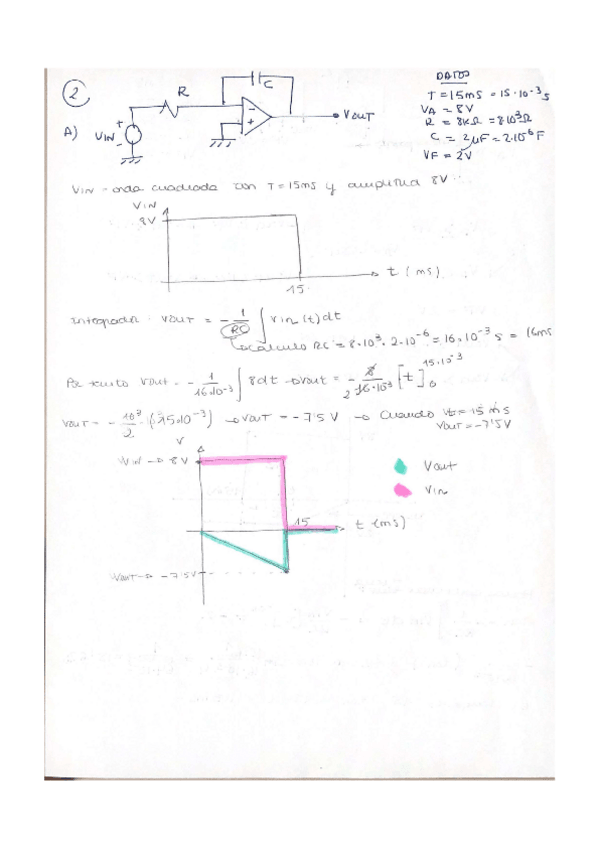 2
DATOS
T = 15ms = 15·10⁻³s
VA = 8V
R = 8KΩ = 8·10³Ω
C = 2µF = 2·10⁻⁶F
VF = 2V
R
C
A) VIN + -
- +
VOUT
VIN = onda cuadrada con T = 15ms y amplitud 8V
VIN
8V
t (ms)
15
Integrador: Vout = - 1/RC ∫ Vin (t) dt
calculo RC = 8·10³·2·10⁻⁶ = 16·10⁻³ s = 16ms
Por tanto Vout = - 1/16·10⁻³ ∫ 8dt → Vout = - 8/16·10⁻³ [t] 15·10⁻³ 0
2
Vout = - 10³/2 · (15·10⁻³) → Vout = -7'5 V → Cuando t = 15 ms
Vout = -7'5V
V
Vin → 8V
Vout
Vin
15
t (ms)
Vout → -7'5V